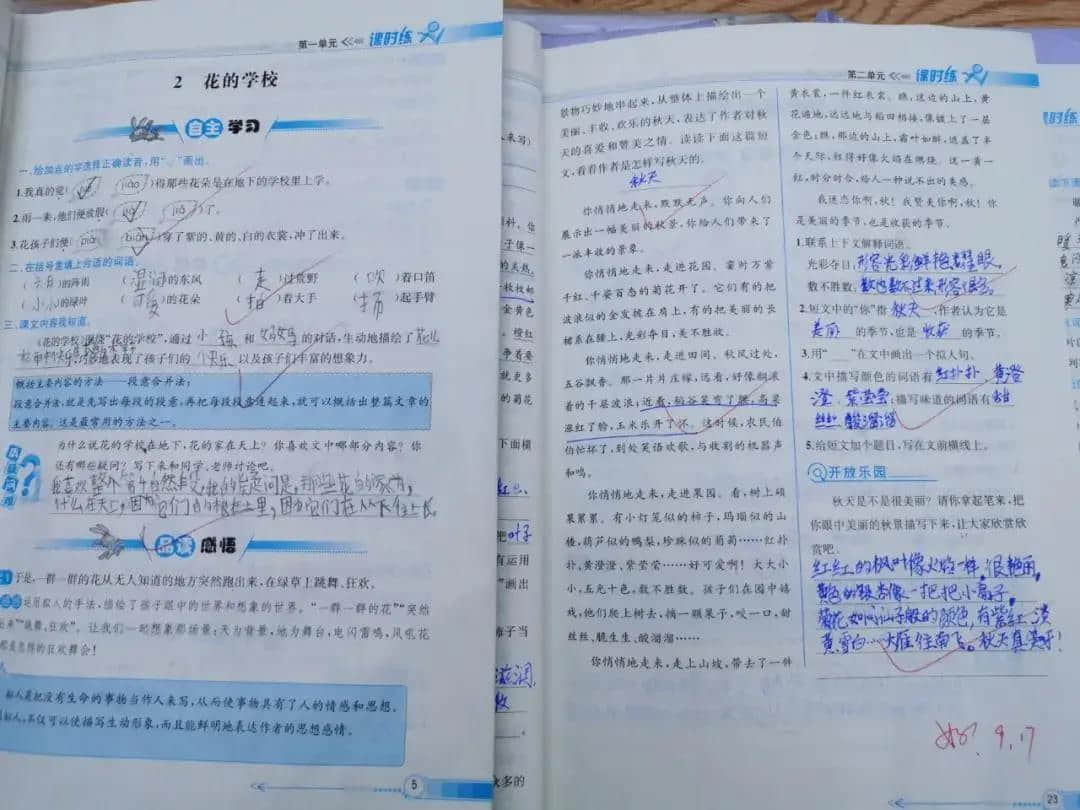 第一单元
课时练
2 花的学校
自主学习
一、给加点的字选择正确读音,用“ ”画出。
1.我真的觉( jiào)得那些花朵是在地下的学校里上学。
2.雨一来,他们便放假( jiǎ jià)了。
3.花孩子们便(pián biàn)穿了紫的、黄的、白的衣裳,冲了出来。
二、在括号里填上合适的词语。
( )的阵雨 (湿润)的东风 (走)过荒野 (吹)着口笛
(小小)的绿叶 (可爱)的花朵 (拍)着大手 (扬)起手臂
三、课文内容我知道。
《花的学校》围绕“花的学校”,通过 和 的对话,生动地描绘了
地表现了孩子们的 快乐 以及孩子们丰富的想象力。
概括主要内容的方法——段意合并法:
段意合并法,就是先写出每段的段意,再把每段段意连起来,就可以概括出整篇文章的
主要内容。这是最常用的方法之一。
为什么说花的学校在地下,花的家在天上?你喜欢文中哪部分内容?你
还有哪些疑问?写下来和同学、老师讨论吧。
品读感悟
于是,一群一群的花从无人知道的地方突然跑出来,在绿草上跳舞、狂欢。
运用拟人的手法,描绘了孩子眼中的世界和想象的世界。“一群一群的花”“突然
出来”“跳舞、狂欢”。让我们一起想象那场景:天为背景,地为舞台,电闪雷鸣,风吼花
那是怎样的狂欢舞会!
拟人是把没有生命的事物当作人来写,从而使事物具有了人的情感和思想。
拟人,不仅可以使描写生动形象,而且能鲜明地表达作者的思想感情。
5
第二单元
课时练
景物巧妙地串起来,从整体上描绘出一个
美丽、丰收、欢乐的秋天,表达了作者对秋
天的喜爱和赞美之情。读读下面这篇短
文,看看作者是怎样写秋天的。
秋天
你悄悄地走来,默默无声。你向人们
展示出一幅美丽的秋景,你给人们带来了
一派丰收的景象。
你悄悄地走来,走进花园。霎时万紫
千红,千姿百态的菊花开了。它们有的把
波浪似的金发披在肩上,有的把美丽的长
裙系在腰上,光彩夺目,美不胜收。
你悄悄地走来,走进田间。秋风过处,
五谷飘香。那一片片庄稼,远看,好像翻滚
着的千层波浪;近看,稻谷笑弯了腰,高粱
涨红了脸,玉米乐开了怀。这时候,农民伯
伯忙坏了,到处笑语欢歌,与收割的机器声
和鸣。
你悄悄地走来,走进果园。看,树上硕
果累累。有小灯笼似的柿子,玛瑙似的山
楂,葫芦似的鸭梨,珍珠似的葡萄……红扑
扑,黄澄澄,紫莹莹……好可爱啊!大大小
小,五光十色,数不胜数。孩子们在园中嬉
戏,他们爬上树去,摘一颗果子,咬一口,甜
丝丝,脆生生,酸溜溜……
你悄悄地走来,走上山坡,带去了一件
黄衣裳,一件红衣裳。瞧,这边的山上,黄
花遍地,远远地与稻田相接,像镀上了一层
金色;瞧,那边的山上,霜叶如醉,遮盖了半
个天际,红得好像火焰在燃烧。这一黄一
红,时分时合,给人一种说不出的美感。
我迷恋你啊,秋!我赞美你啊,秋!你
是美丽的季节,也是收获的季节。
1.联系上下文解释词语。
光彩夺目:形容光彩鲜艳耀眼。
数不胜数:数也数不过来,形容很多。
2.短文中的“你”指 秋天 ,作者认为它是
美丽 的季节,也是 收获 的季节。
3.用“ ”在文中画出一个拟人句。
4.文中描写颜色的词语有 红扑扑 黄澄
澄、紫莹莹;描写味道的词语有 甜
丝丝 酸溜溜
5.给短文加个题目,写在文前横线上。
开放乐园
秋天是不是很美丽?请你拿起笔来,把
你眼中美丽的秋景描写下来,让大家欣赏欣
赏吧。
红红的枫叶像火焰一样,很艳丽,
黄色的银杏像一把把小扇子,
菊花 的颜色,有紫红、淡
黄、雪白…大雁往南飞。秋天真美呀!
9.17
23